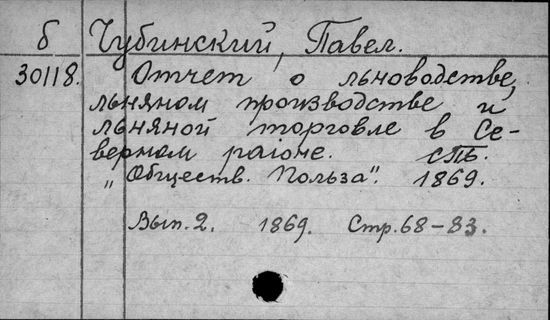 б Чубинский, Павел.
30118. Отчет о льноводстве,
льняном производстве и
льняной торговле в Се-
верном раіоне. СПБ.
„Обществ. Польза". 1869.
Вып. 2. 1869. Стр. 68-83.